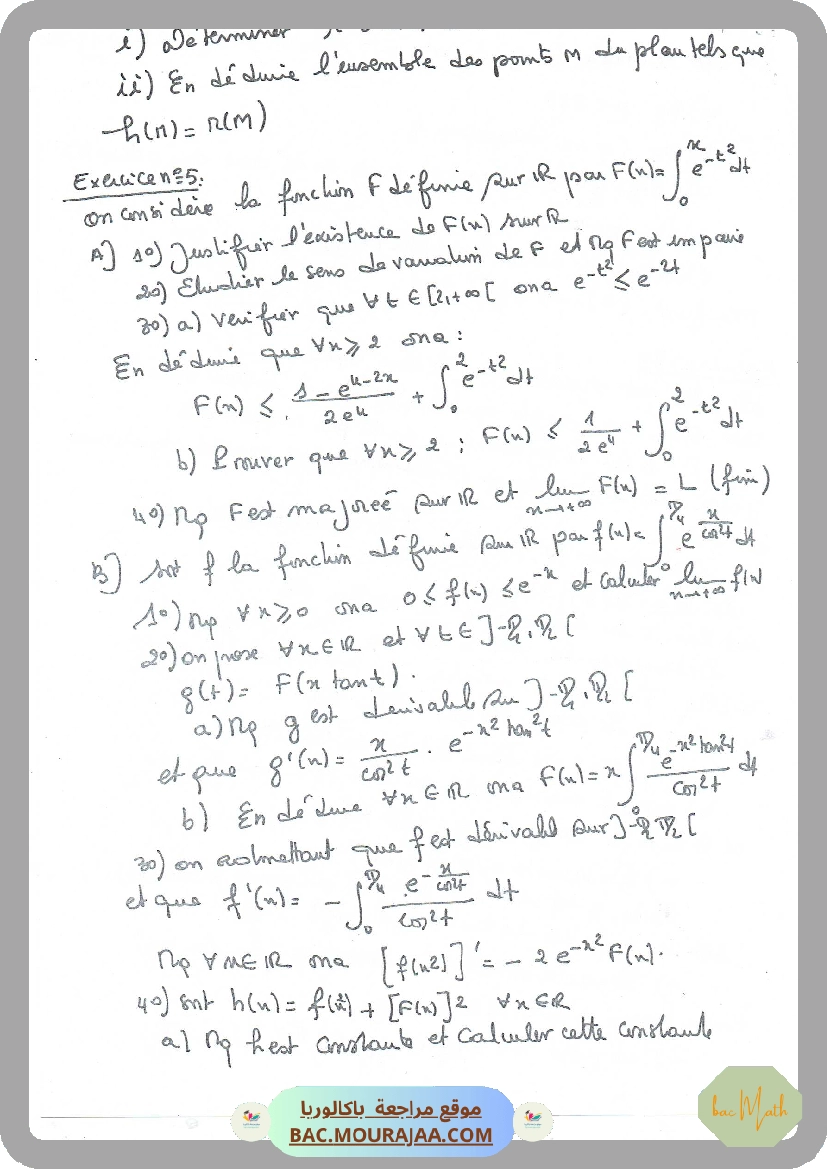 i) Déterminer
ii) En déduire l'ensemble des points M du plan tels que
h(M) = r(M)
Exercice n°5:
On considère la fonction F définie sur ℝ par F(x) = ∫₀ˣ e^{-t²} dt
A] 1°) Justifier l'existence de F(x) sur ℝ
2°) Etudier le sens de variation de F et Mq F est impaire
3°) a) Vérifier que ∀t ∈ [2,+∞[ on a e^{-t²} ≤ e^{-2t}
En déduire que ∀x ≥ 2 on a :
F(x) ≤ (1 - e^{4-2x})/(2e⁴) + ∫₀² e^{-t²} dt
b) Prouver que ∀x ≥ 2 ; F(x) ≤ 1/(2e⁴) + ∫₀² e^{-t²} dt
4°) Mq F est majoreé sur ℝ et lim_{x→+∞} F(x) = L (fini)
B] Soit f la fonction définie sur ℝ par f(x) = ∫₀^{π/4} e^{x/cos²t} dt
1°) Mq ∀x ≥ 0 on a 0 ≤ f(x) ≤ e^{-x} et calculer lim_{x→+∞} f(x)
2°) on pose ∀x ∈ ℝ et ∀t ∈ ]-π/2, π/2[
g(t) = F(x tant).
a) Mq g est dérivable sur ]-π/2, π/2[
et que g'(x) = x/cos²t . e^{-x² tan²t}
b) En déduire ∀x ∈ ℝ on a F(x) = x ∫₀^{π/4} e^{-x² tan²t}/cos²t dt
3°) on admettant que f est dérivable sur ]-π/2, π/2[
et que f'(x) = - ∫₀^{π/4} e^{-x/cos²t}/cos²t dt
Mq ∀x ∈ ℝ on a [f(x²)]' = - 2 e^{-x²} F(x).
4°) Soit h(x) = f(x²) + [F(x)]² ∀x ∈ ℝ
a) Mq h est constante et calculer cette constante
bac Math
موقع مراجعة باكالوريا
BAC.MOURAJAA.COM